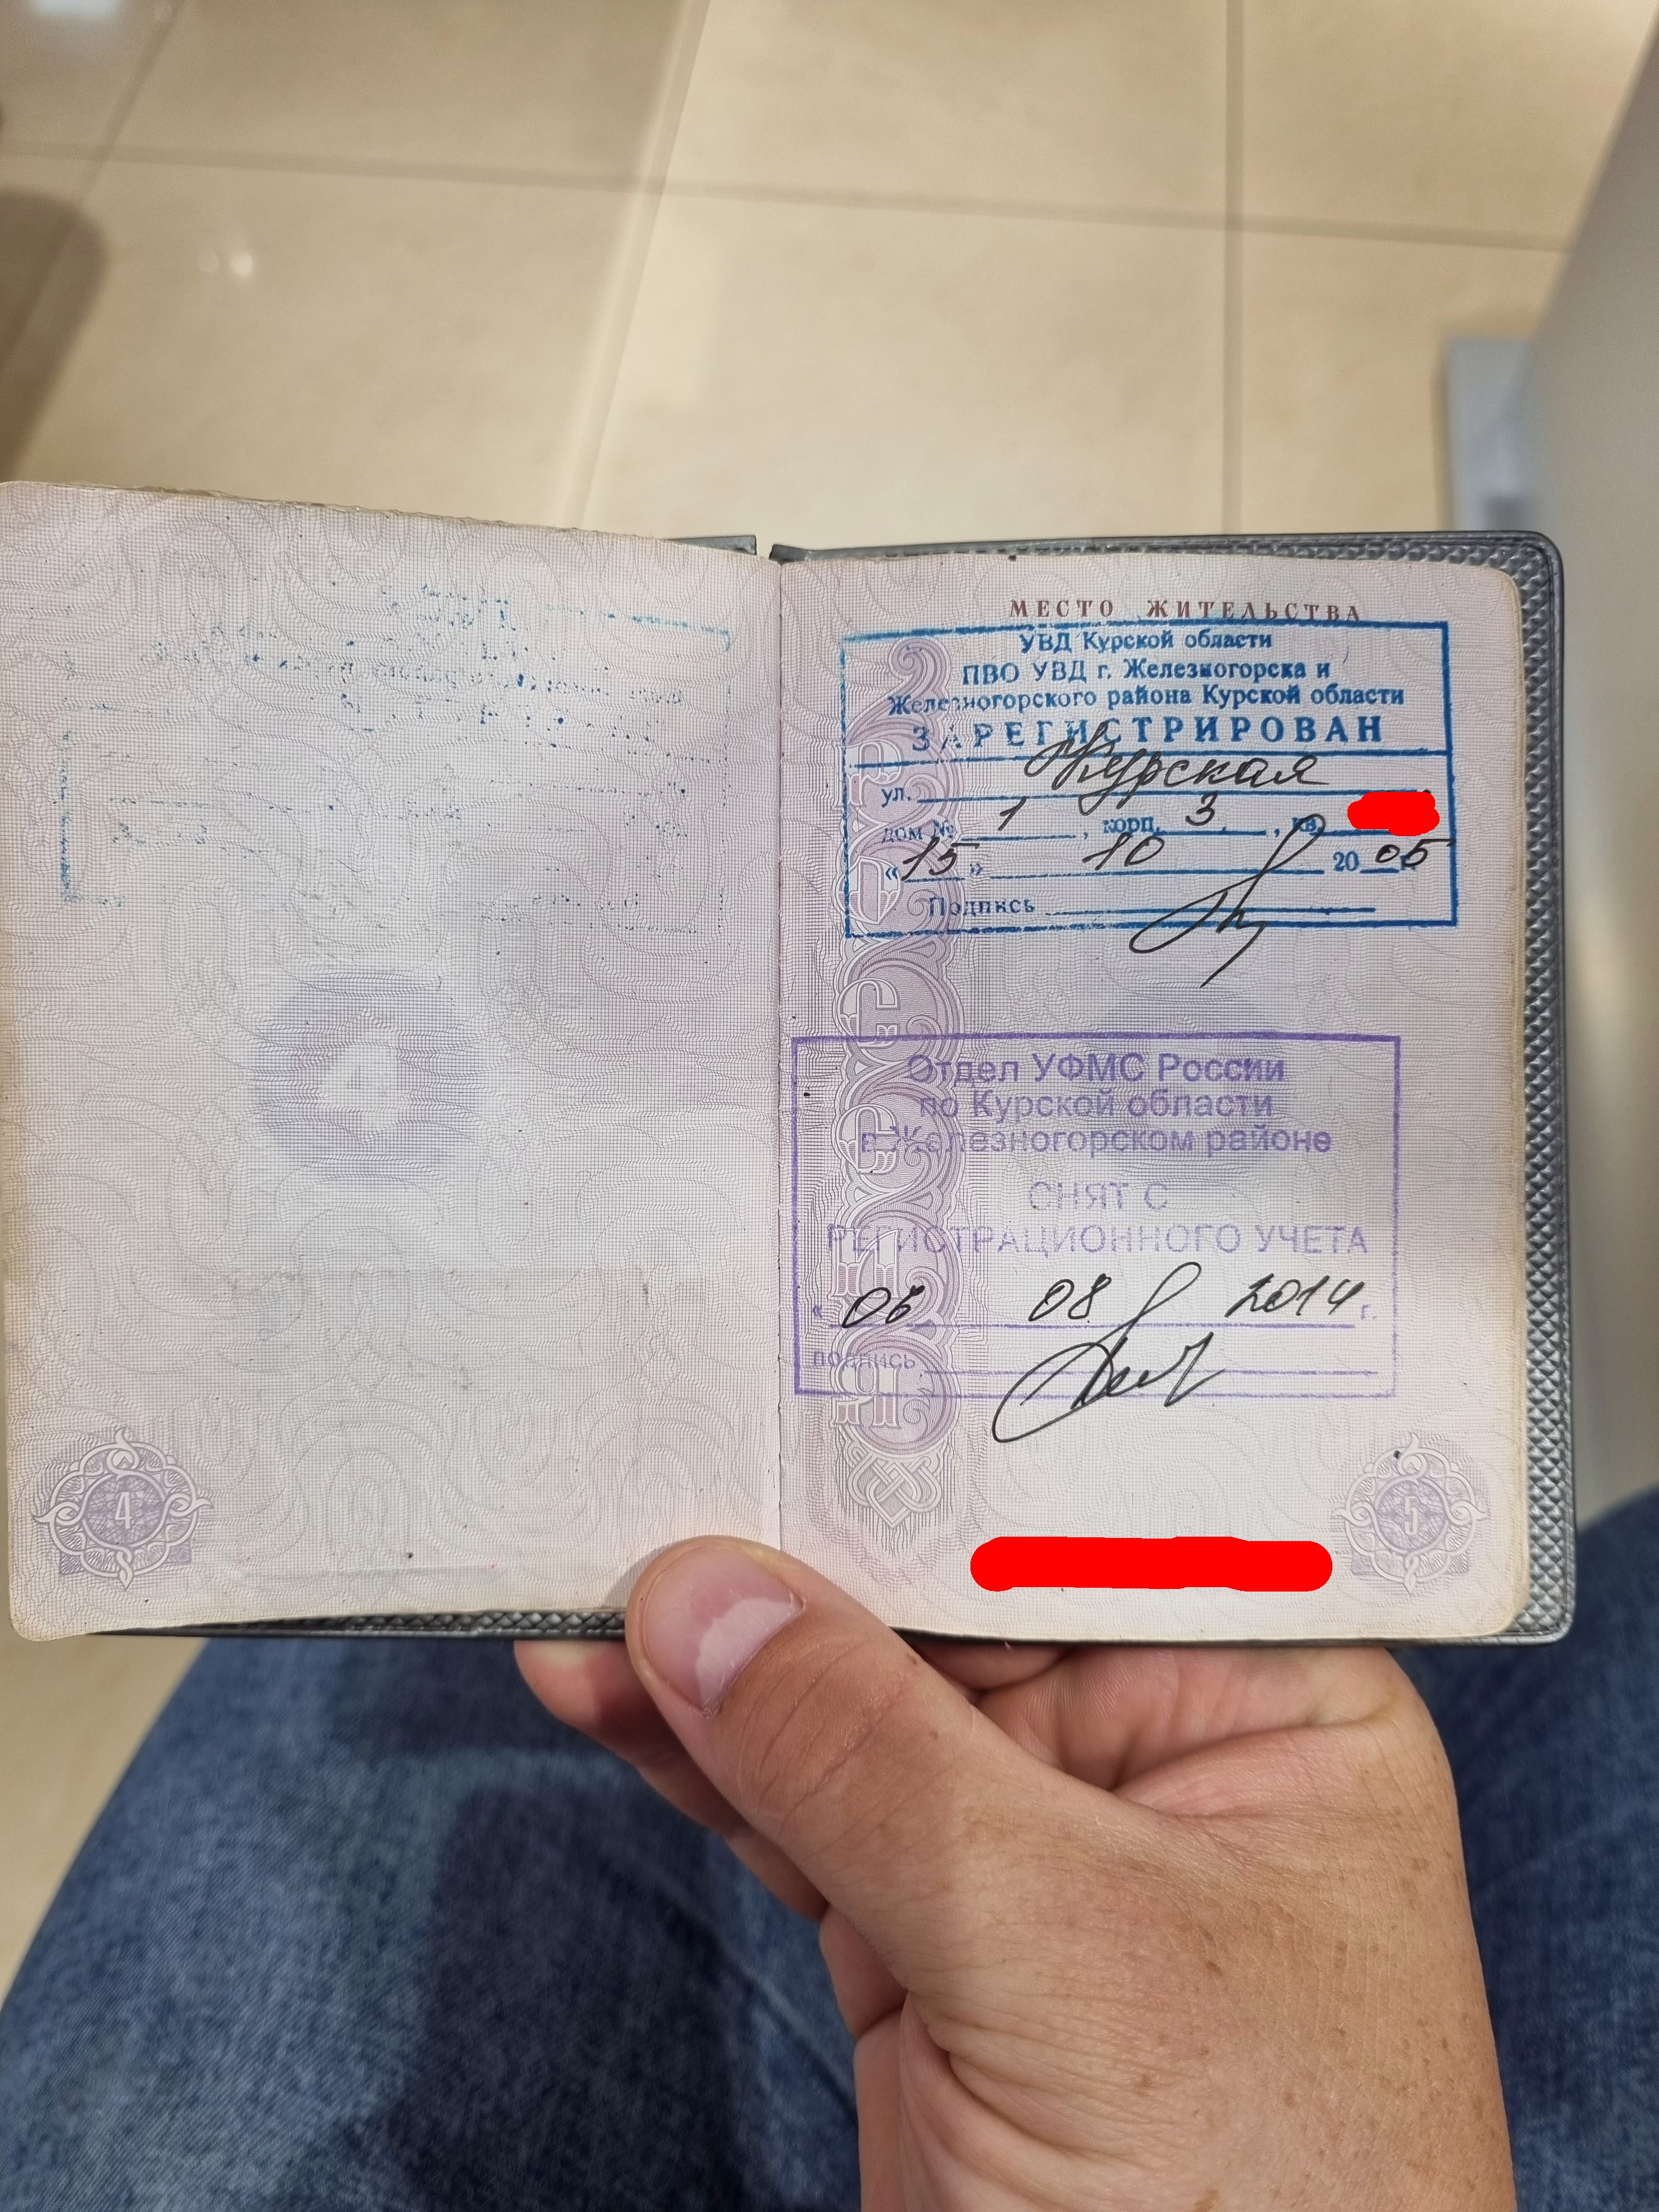 МЕСТО ЖИТЕЛЬСТВА
УВД Курской области
ПВО УВД г. Железногорска и
Железногорского района Курской области
ЗАРЕГИСТРИРОВАН
ул. Курская
дом № 1, корп. 3, кв.
«15» 10 2005
Подпись
РОССИЯ
Отдел УФМС России
по Курской области
в Железногорском районе
СНЯТ С
РЕГИСТРАЦИОННОГО УЧЕТА
«06 08 2014 г.
подпись
4
4
5